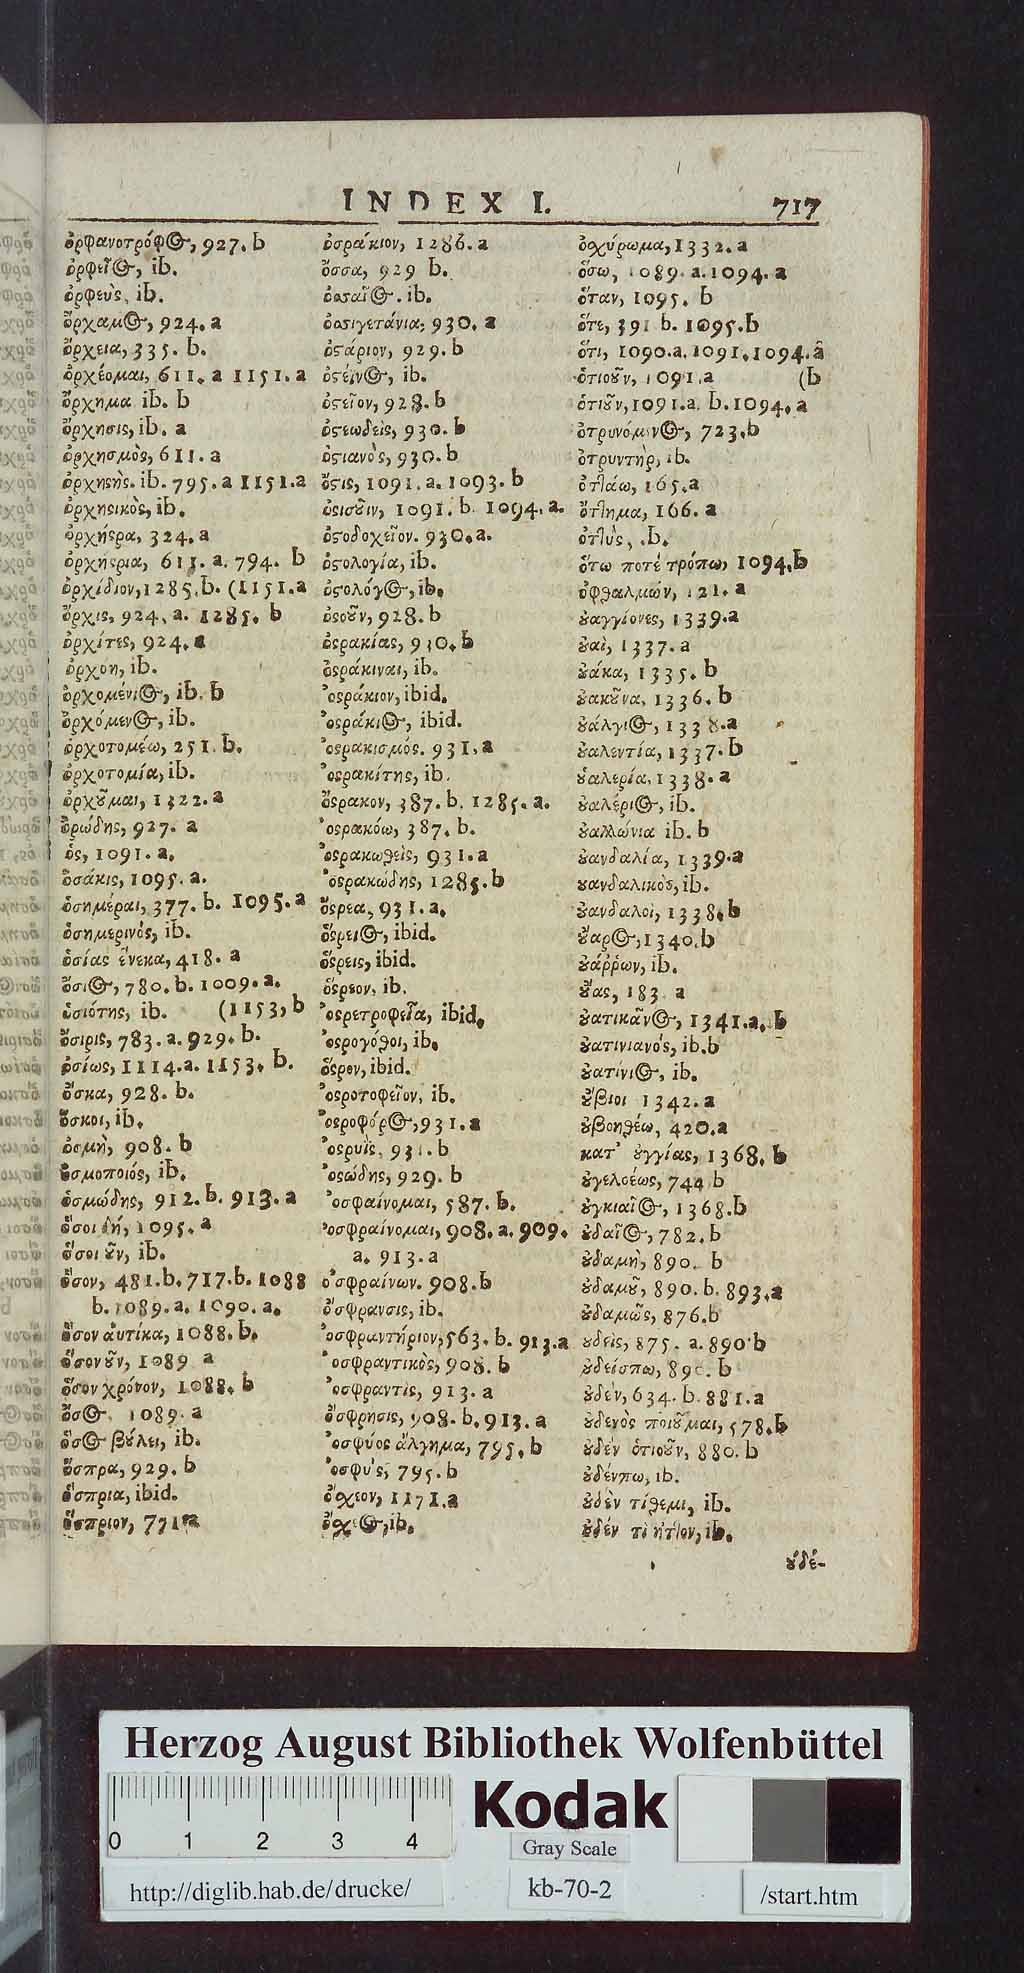 INDEX I. 717
ὀρφανοτρόφος, 927. b
ὀρφεῖος, ib.
ὀρφεὺς, ib.
ὄρχαμος, 924. a
ὄρχεια, 335. b.
ὀρχέομαι, 611. a 1151. a
ὄρχημα ib. b
ὄρχησις, ib. a
ὀρχησμὸς, 611. a
ὀρχηϛὴς. ib. 795. a 1151. a
ὀρχηϛικὸς, ib.
ὀρχήϛρα, 324. a
ὀρχήϛρια, 611. a. 794. b
ὀρχίδιον, 1285. b. (1151. a
ὄρχις, 924. a. 1285. b
ὀρχίτες, 924. a
ὀρχοη, ib.
ὀρχομένιος, ib. b
ὀρχόμενος, ib.
ὀρχοτομέω, 251. b.
ὀρχοτομία, ib.
ὀρχȣ͂μαι, 1322. a
ὀρώδης, 927. a
ὁς, 1091. a.
ὁσάκις, 1095. a.
ὁσημέραι, 377. b. 1095. a
ὁσημερινὸς, ib.
ὁσίας ἕνεκα, 418. a
ὅσιος, 780. b. 1009. a.
ὁσιότης, ib. (1153, b
ὄσιρις, 783. a. 929. b.
ὁσίως, 1114. a. 1153. b.
ὄσκα, 928. b.
ὄσκοι, ib.
ὀσμὴ, 908. b
ὀσμοποιός, ib.
ὀσμώδης, 912. b. 913. a
ὅσοι δή, 1095. a
ὅσοι ȣ͂ν, ib.
ὅσον, 481. b. 717. b. 1088
b. 1089. a. 1090. a.
ὅσον ἀυτίκα, 1088. b.
ὅσονȣ͂ν, 1089 a
ὅσον χρόνον, 1088. b
ὅσος 1089. a
ὅσος βȣ́λει, ib.
ὄσπρα, 929. b
ὄσπρια, ibid.
ὄσπριον, 771. a
ὀσράκιον, 1286. a
ὄσσα, 929 b.
ὀσϛαῖος. ib.
ὀσϛιγετάνια, 930. a
ὀϛάριον, 929. b
ὀϛέϊνος, ib.
ὀϛεῖον, 928. b
ὀϛεωδεὶς, 930. b
ὀϛιανὸς, 930. b
ὅϛις, 1091. a. 1093. b
ὁϛισȣ͂ιν, 1091. b. 1094. a.
ὀϛοδοχεῖον. 930. a.
ὀϛολογία, ib.
ὀϛολόγος, ib.
ὀϛοȣ͂ν, 928. b
ὀϛρακίας, 930. b
ὀϛράκιναι, ib.
ὀϛράκιον, ibid.
ὀϛράκιος, ibid.
ὀϛρακισμός. 931. a
ὀϛρακίτης, ib.
ὄϛρακον, 387. b. 1285. a.
ὀϛρακόω, 387. b.
ὀϛρακωθεὶς, 931. a
ὀϛρακώδης, 1285. b
ὄϛρεα, 931. a.
ὄϛρειος, ibid.
ὄϛρεις, ibid.
ὄϛρεον, ib.
ὀϛρετροφεῖα, ibid.
ὀϛρογόθοι, ib.
ὄϛρον, ibid.
ὀϛροτοφεῖον, ib.
ὀϛροφόρος, 931. a
ὀϛρυῒς, 931. b
ὀϛώδης, 929. b
ὀσφαίνομαι, 587. b.
ὀσφραίνομαι, 908. a. 909.
a. 913. a
ὀσφραίνων. 908. b
ὄσφρανσις, ib.
ὀσφραντήριον, 563. b. 913. a
ὀσφραντικὸς, 908. b
ὀσφραντὶς, 913. a
ὄσφρησις, 908. b. 913. a
ὀσφύος ἄλγημα, 795. b
ὀσφὺς, 795. b
ὄχεον, 1171. a
ὄχεος, ib.
ὀχύρωμα, 1332. a
ὅσω, 1089. a. 1094. a
ὅταν, 1095. b
ὅτε, 391 b. 1095. b
ὅτι, 1090. a. 1091. 1094. a
ὁτιοῦν, 1091. a (b
ὁτιȣ͂ν, 1091. a. b. 1094. a
ὀτρυνόμενος, 723. b
ὀτρυντηρ, ib.
ὀτλάω, 165. a
ὄτλημα, 166. a
ὀτλὺς, ib.
ὅτω ποτέ τρόπω, 1094. b
ὀφθαλμών, 121. a
ȣ̓αγγίονες, 1339. a
ȣ̓αὶ, 1337. a
ȣ̓άκα, 1335. b
ȣ̓ακȣ͂να, 1336. b
ȣ̓άλγιος, 1338. a
ȣ̓αλεντία, 1337. b
ȣ̓αλερία, 1338. a
ȣ̓αλέριος, ib.
ȣ̓αλλώνια ib. b
ȣ̓ανδαλία, 1339. a
ȣ̓ανδαλικὸς, ib.
ȣ̓ανδαλοὶ, 1338. b
ȣ̓́αρος, 1340. b
ȣ̓άῤῥων, ib.
ȣ̓͂ας, 183 a
ȣ̓ατικᾶνος, 1341. a. b
ȣ̓ατινιανός, ib. b
ȣ̓ατίνιος, ib.
ȣ̓́βιοι 1342. a
ȣ̓βοηθέω, 420. a
κατ' ȣ̓γγίας, 1368. b
ȣ̓γελσέως, 744 b
ȣ̓γκιαῖος, 1368. b
ȣ̓δαῖος, 782. b
ȣ̓δαμὴ, 890. b
ȣ̓δαμȣ͂, 890. b. 893. a
ȣ̓δαμῶς, 876. b
ȣ̓δεὶς, 875. a. 890 b
ȣ̓δείσπω, 890. b
ȣ̓δὲν, 634. b. 881. a
ȣ̓δενὸς ποιȣ͂μαι, 578. b
ȣ̓δέν ὁτιοῦν, 880. b
ȣ̓δένπω, ib.
ȣ̓δὲν τίθεμι, ib.
ȣ̓δέν τὶ ἧττον, ib.
ȣ̓δέ-
Herzog August Bibliothek Wolfenbüttel
0 1 2 3 4
Kodak
Gray Scale
http://diglib.hab.de/drucke/
kb-70-2
/start.htm